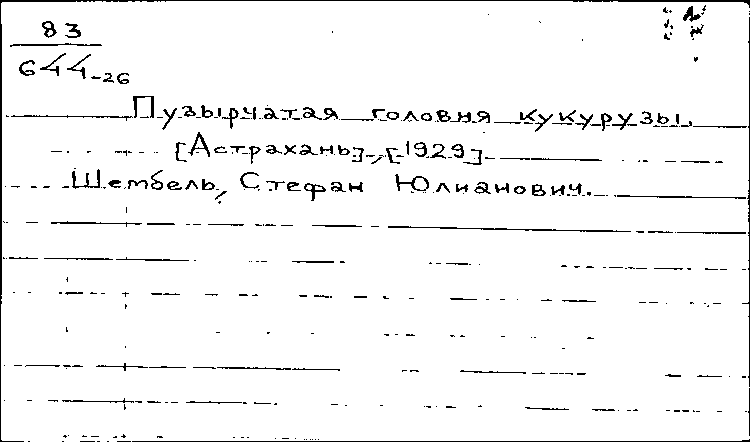 83
644-26
Пузырчатая головня кукурузы.
[Астрахань], [1929]
Шембель, Стефан Юлианович.